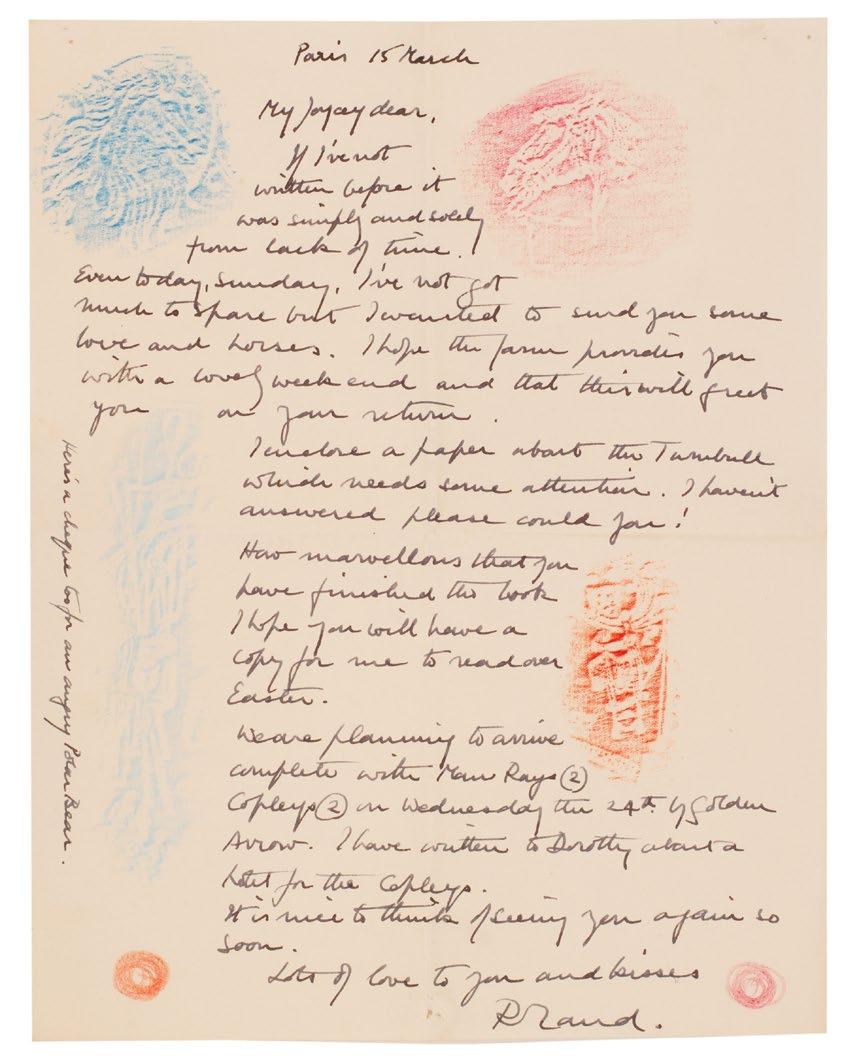 Paris 15 March
My Joycey dear,
If I've not
written before it
was simply and solely
from lack of time.
Even today, Sunday, I've not got
much to spare but I wanted to send you some
love and horses. I hope the farm provides you
with a lovely weekend and that this will greet
you on your return.
I enclose a paper about the Turnbull
which needs some attention. I haven't
answered please could you!
How marvellous that you
have finished the book
I hope you will have a
copy for me to read over
Easter.
We are planning to arrive
complete with Man Rays ②
Copleys ② on Wednesday the 24th by Golden
Arrow. I have written to Dorothy about a
hotel for the Copleys.
It is nice to think of seeing you again so
soon.
Lots of love to you and kisses
Here's a cheque too for an angry Polar Bear.